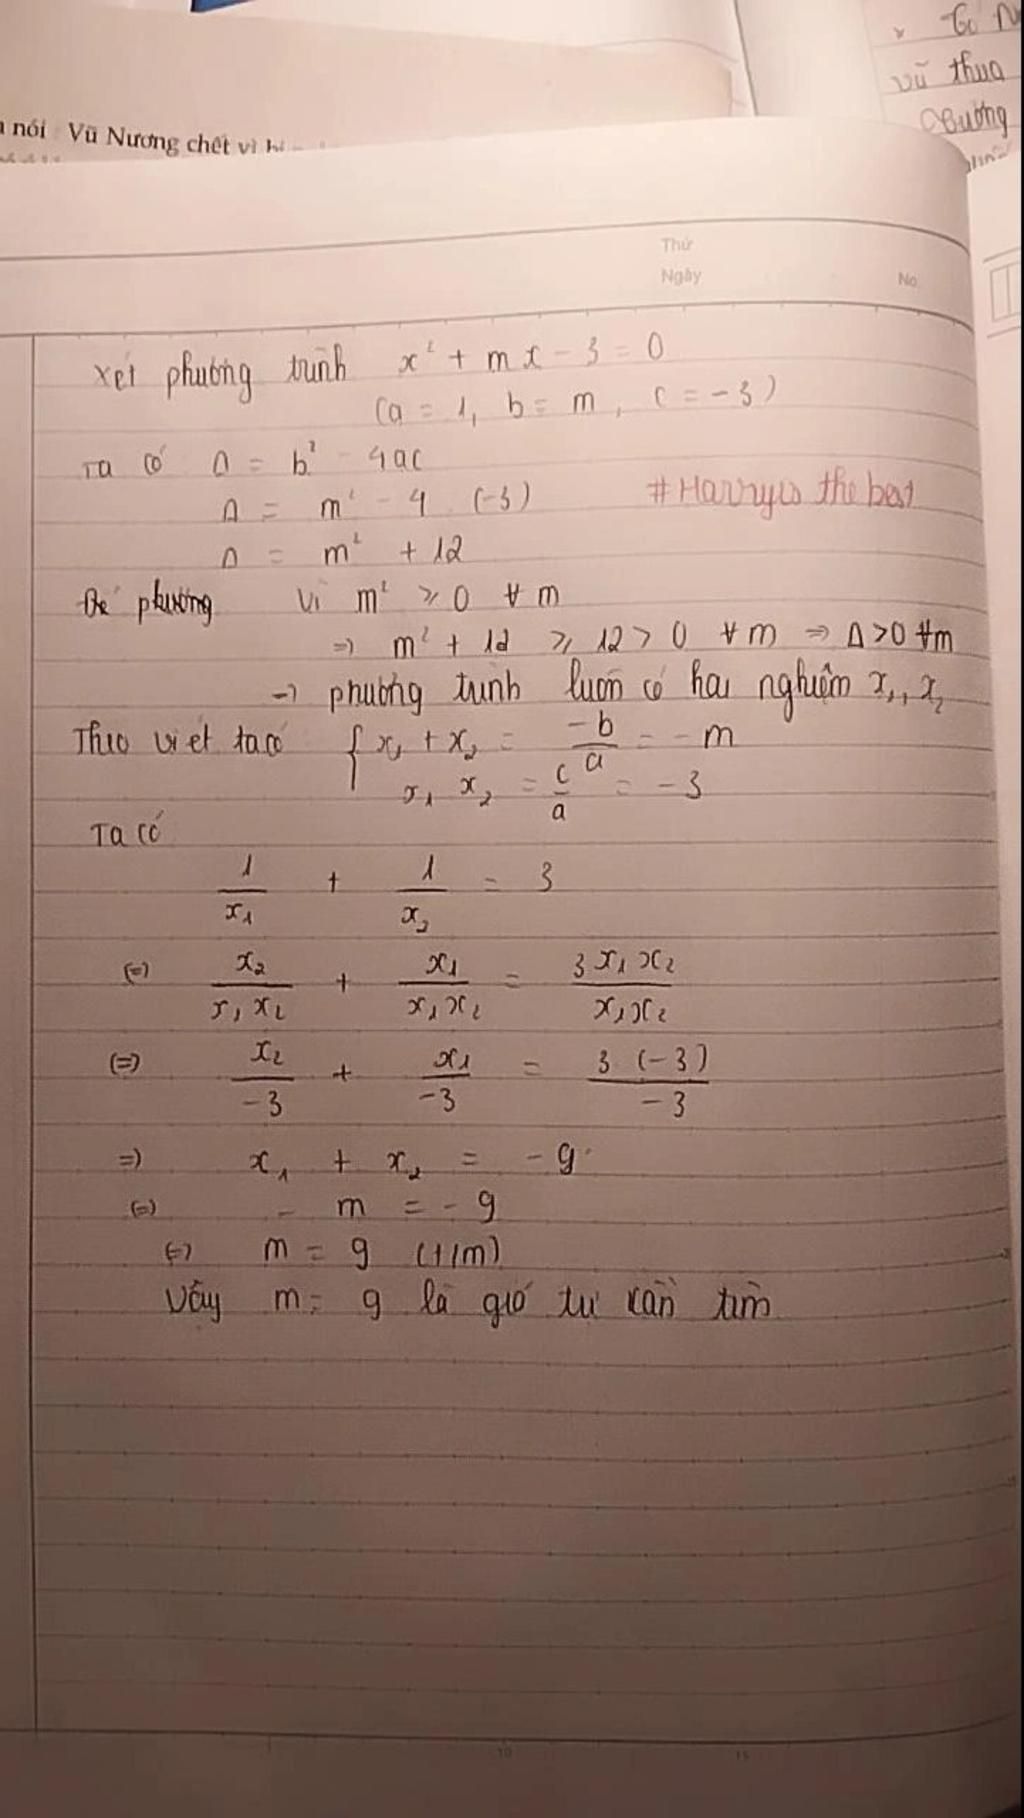 nói Vũ Nương chết vì
vũ thua
Thứ
Ngày
No
Xét phương trình x² + mx - 3 = 0
(a = 1, b = m, c = -3)
Ta có Δ = b² - 4ac
Δ = m² - 4 (-3)
#Harry is the best
Δ = m² + 12
Để phương Vì m² ≥ 0 ∀ m
=> m² + 12 ≥ 12 > 0 ∀ m => Δ > 0 ∀m
-> phương trình luôn có hai nghiệm x₁, x₂
Theo viét ta có { x₁ + x₂ = -b/a = - m
x₁ x₂ = c/a = - 3
Ta có
1/x₁ + 1/x₂ = 3
(=) x₂/x₁x₂ + x₁/x₁x₂ = 3x₁x₂/x₁x₂
(=) x₂/-3 + x₁/-3 = 3.(-3)/-3
=) x₁ + x₂ = - 9
(=) - m = - 9
(=) m = 9 (t/m)
Vậy m = 9 là giá trị cần tìm
10
15